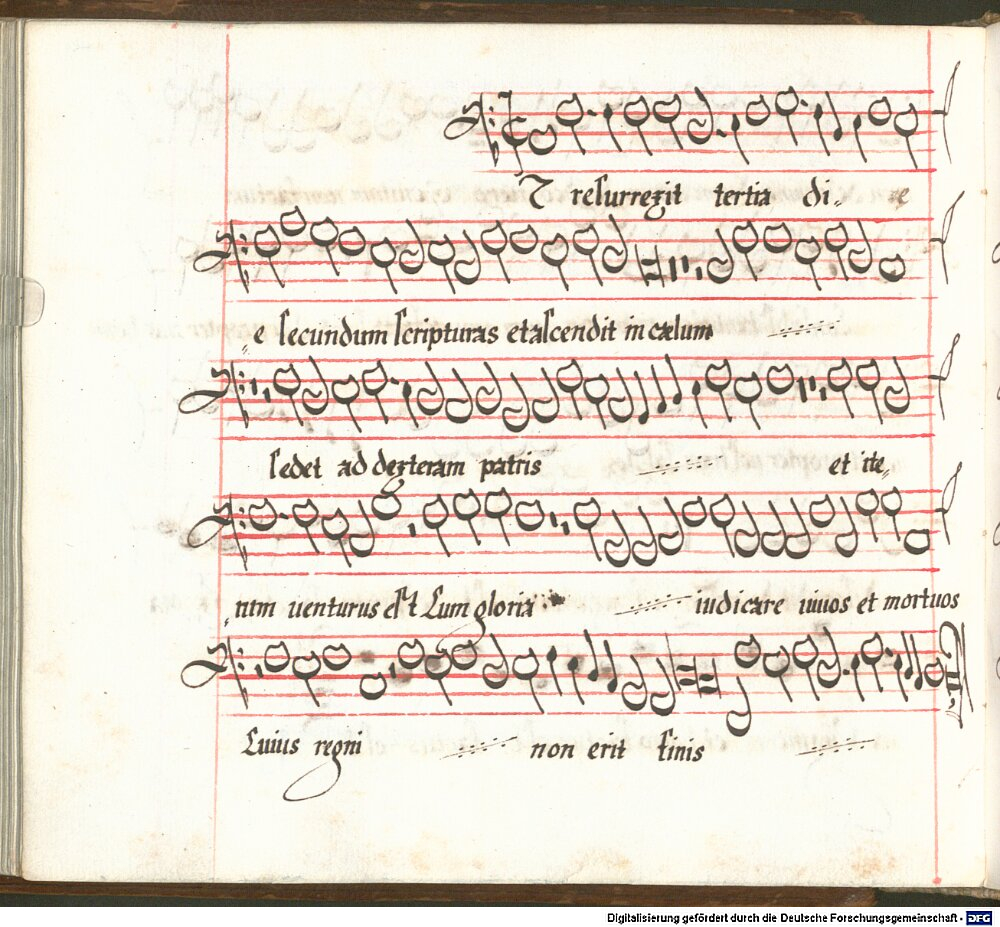 T resurrexit tertia di„ e
„e secundum scripturas et ascendit in cælum
sedet ad dexteram patris et ite„
„rum uenturus est Cum gloria iudicare uiuos et mortuos
Cuius regni non erit finis
Digitalisierung gefördert durch die Deutsche Forschungsgemeinschaft - DFG